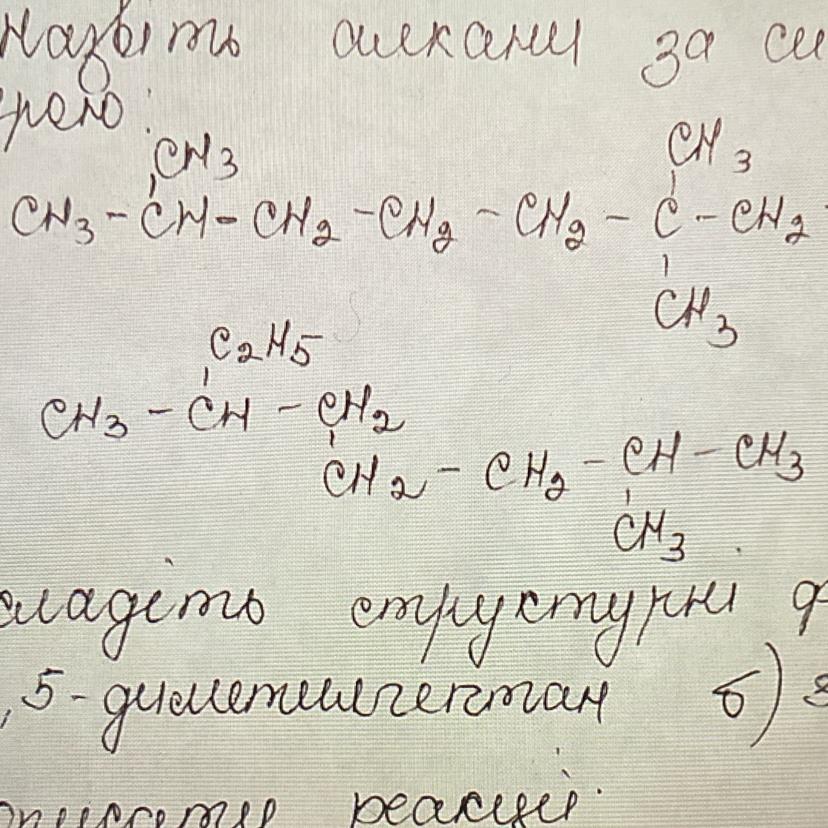 Назвіть алкани за си
рею:
CH3
CH3
CH3 - CH - CH2 - CH2 - CH2 - C - CH2 -
CH3
C2H5
CH3 - CH - CH2
CH2 - CH2 - CH - CH3
CH3
кладіть структурні ф
,5-диметилгептан б)
реакції: